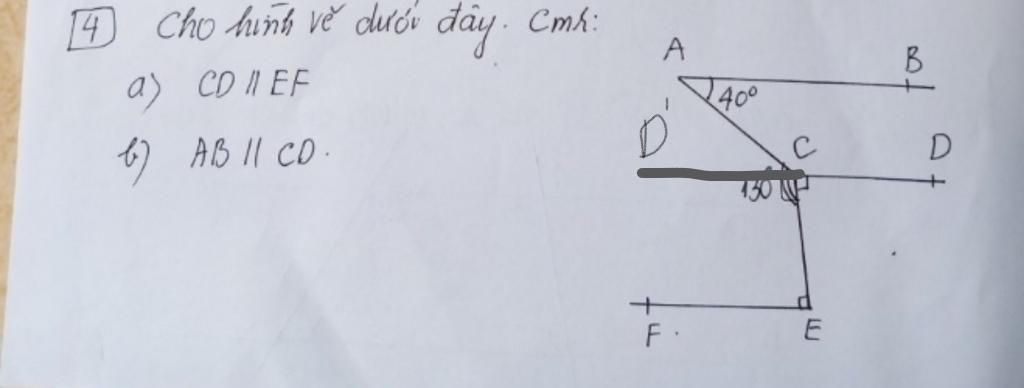 4 Cho hình vẽ dưới đây. Cmr:
a) CD // EF
b) AB // CD.
A
B
40°
D'
C
D
130°
F
E